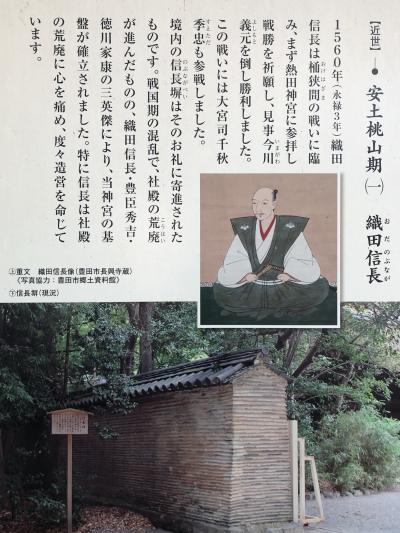 【近世】
安土桃山期(一) 織田信長
おだのぶなが
1560年(永禄3年)織田
信長は桶狭間の戦いに臨
おけはざま
み、まず熱田神宮に参拝し
戦勝を祈願し、見事今川
いまがわ
義元を倒し勝利しました。
よしもと
この戦いには大宮司千秋
季忠も参戦しました。
すえただ
境内の信長塀はそのお礼に寄進された
のぶながべい
ものです。戦国期の混乱で、社殿の荒廃
こうはい
が進んだものの、織田信長・豊臣秀吉・
徳川家康の三英傑により、当神宮の基
盤が確立されました。特に信長は社殿
の荒廃に心を痛め、度々造営を命じて
います。
㊤重文 織田信長像(豊田市長興寺蔵)
〈写真協力:豊田市郷土資料館〉
㊦信長塀(現況)